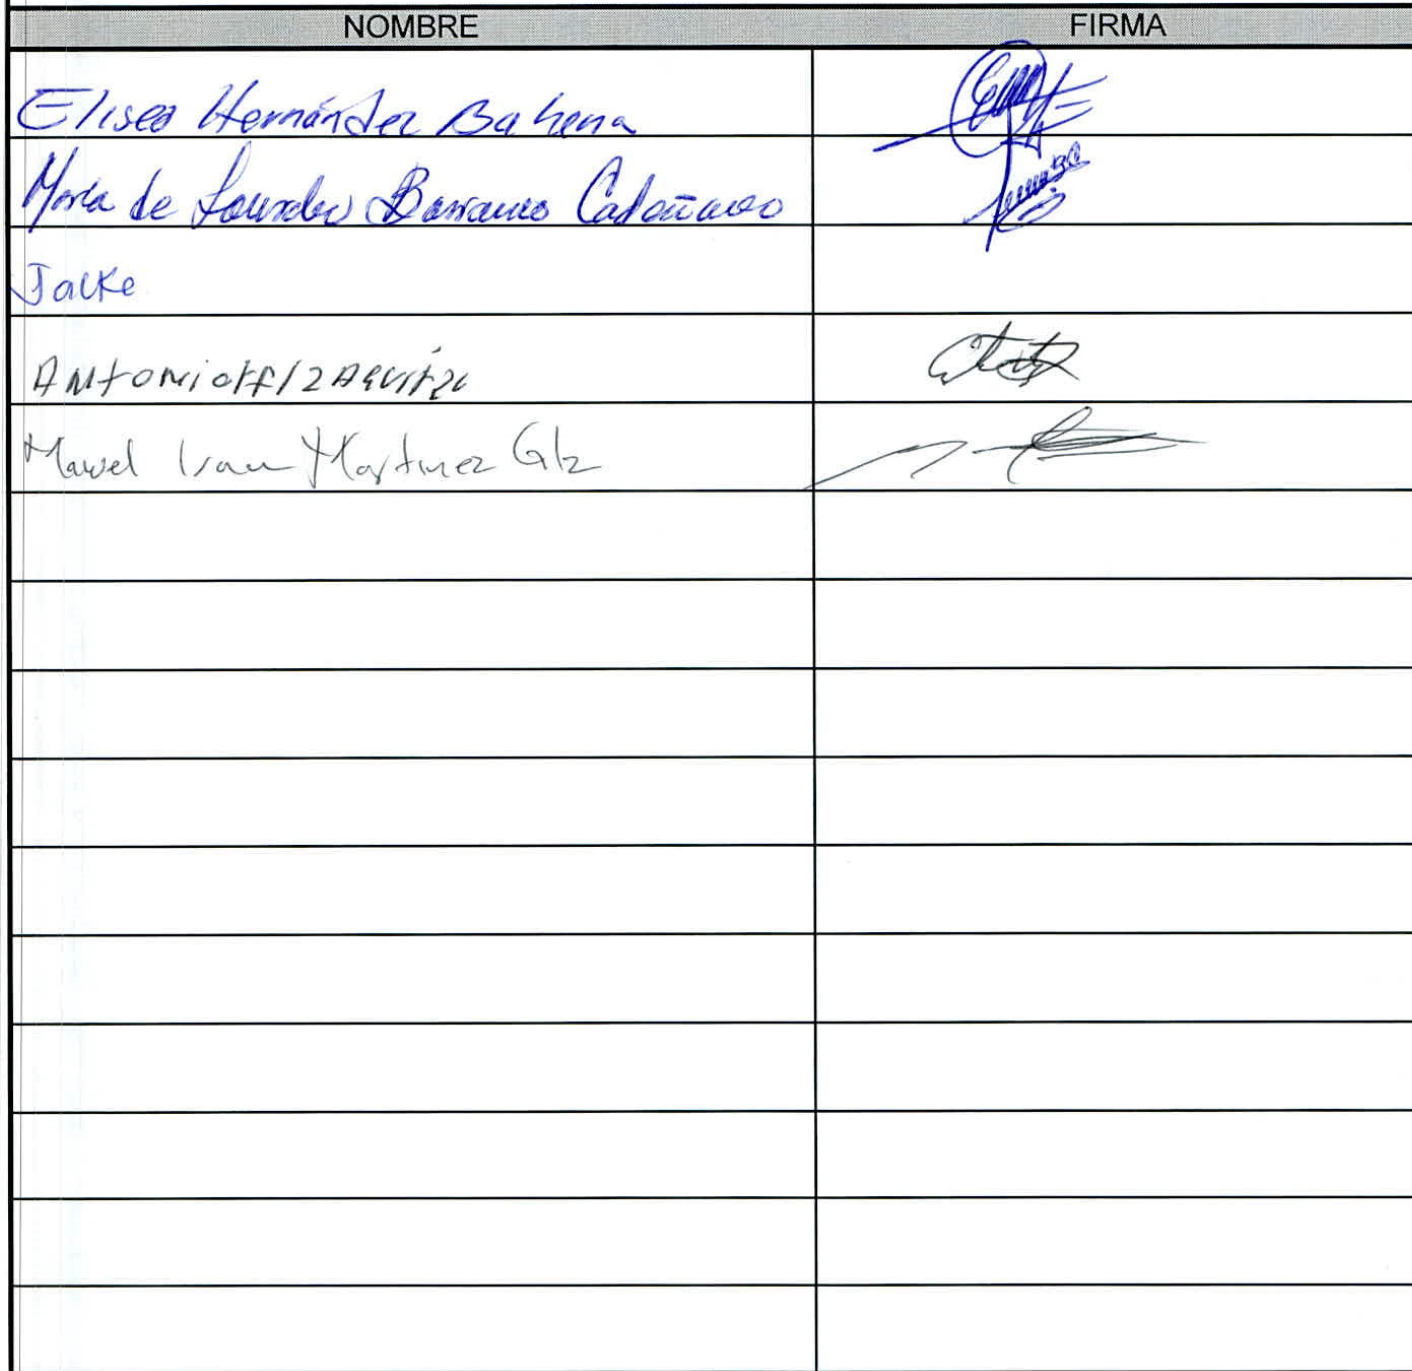 NOMBRE FIRMA
Eliseo Hernández Bahena
María de Lourdes Barranco
Jacke
Antonio
Manuel Ivan Martinez Glz